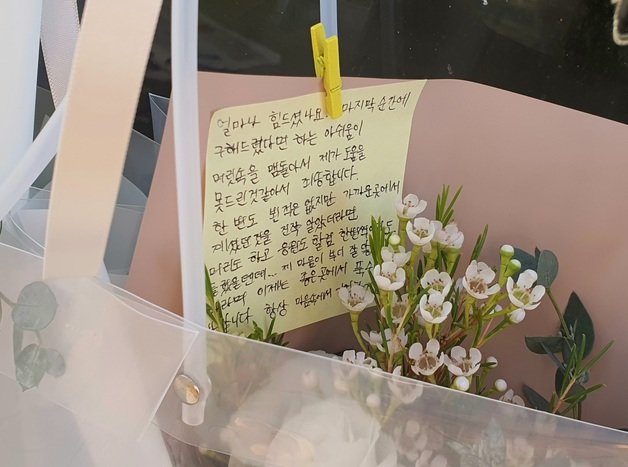 얼마나 힘드셨나요. 마지막 순간에
구해드렸다면 하는 아쉬움이
머릿속을 맴돌아서 제가 도움을
못드린것같아서 죄송합니다.
한 번도 뵌적은 없지만 가까운곳에서
계셨던것을 진작 알았더라면,
머리도 하고 응원도 할겸 한번이라도
제 마음이 부디 잘
이제는 좋은곳에서
항상 마음속에서